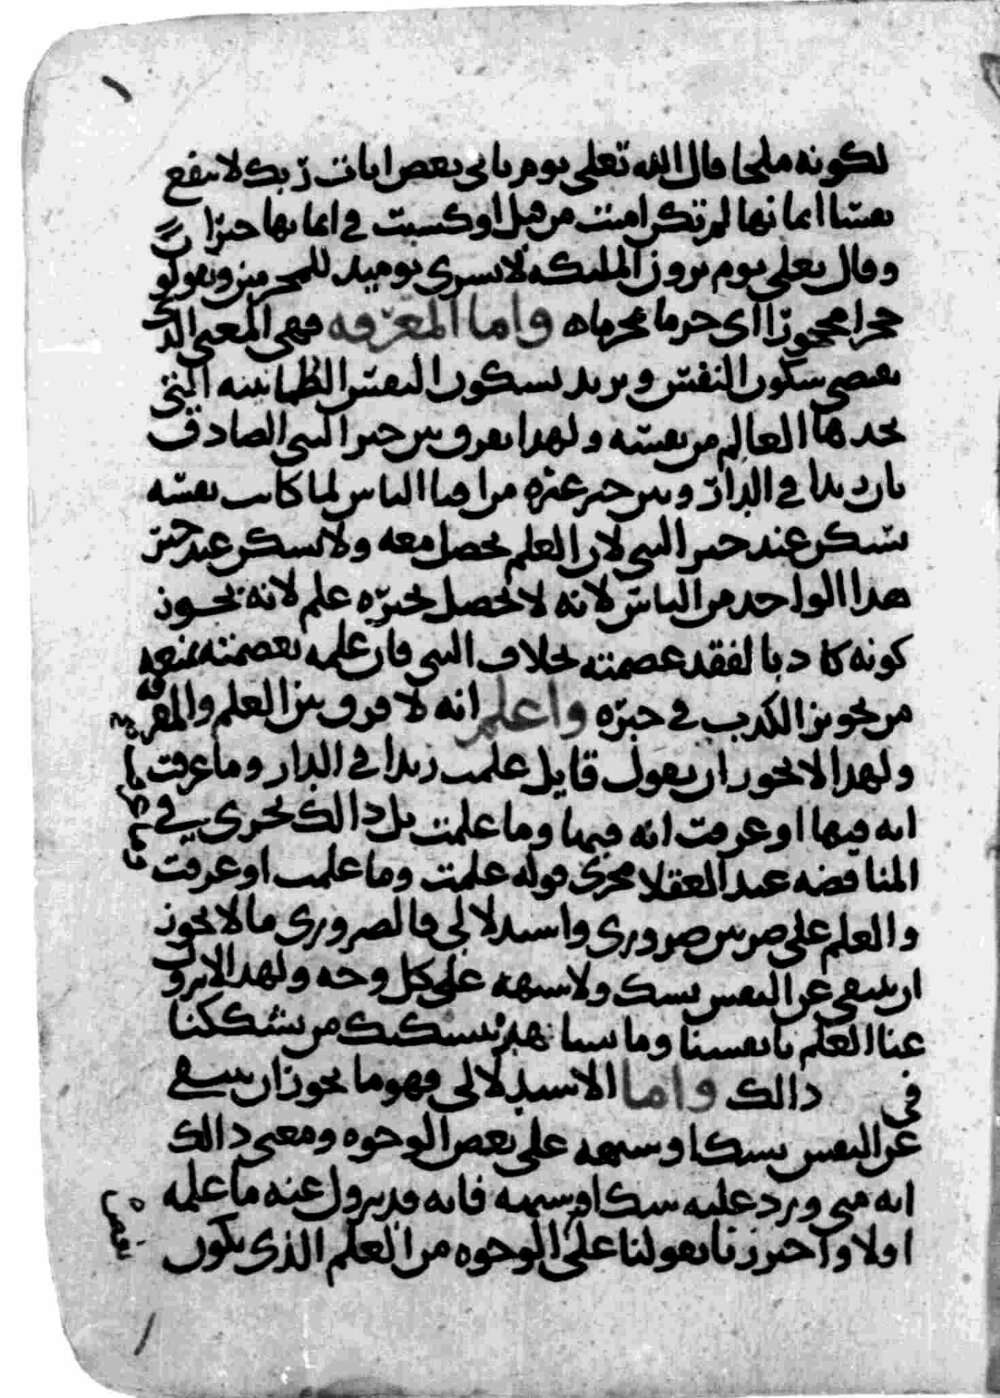 لكونه ملجا قال الله تعلى يوم ياتى بعض ايات ربك لا ينفع
نفسا ايمانها لم تكن امنت من قبل او كسبت في ايمانها خيرا
وقال تعلى يوم يرون الملئكه لا بشرى يوميذ للمجرمين ويقولون
حجرا محجورا اى حرما محرما واما المعرفه فهى المعنى الذى
يقتضى سكون النفس ونريد بسكون النفس الطمانينه التى
يجدها العالم من نفسه ولهذا يفرق بين خبر النبى الصادق
بان زيدا في الدار وبين خبر غيره من افنا الناس لما كانت نفسه
تسكن عند خبر النبى لان العلم يحصل معه ولا تسكن عند خبر
هذا الواحد من الناس لانه لا يحصل بخبره علم لانه يجوز
كونه كاذبا لفقد عصمته بخلاف النبى فان علمه بعصمته يمنعه
من تجويز الكذب في خبره واعلم انه لا فرق بين العلم والمعرفه
ولهذا لا يجوز ان يقول قايل علمت زيدا في الدار وما عرفت
انه فيها او عرفت انه فيها وما علمت بل ذالك يجرى في
المناقضه عند العقلا مجرى قوله علمت وما علمت او عرفت
والعلم على ضربين ضرورى واستدلالى فالضرورى ما لا يجوز
ان ينتفى عن النفس بشك ولا شبهه على كل وجه ولهذا لا يزول
عنا العلم بانفسنا وما بتشكيك من يشككنا
فى ذالك واما الاستدلالى فهو ما يجوز ان ينتفى
عن النفس بشك او شبهه على بعض الوجوه ومعنى ذالك
انه متى ورد عليه شك او شبهه فانه قد يزول عنه ما علمه
اولا واحترزنا بقولنا على الوجوه من العلم الذى يكون
بعض